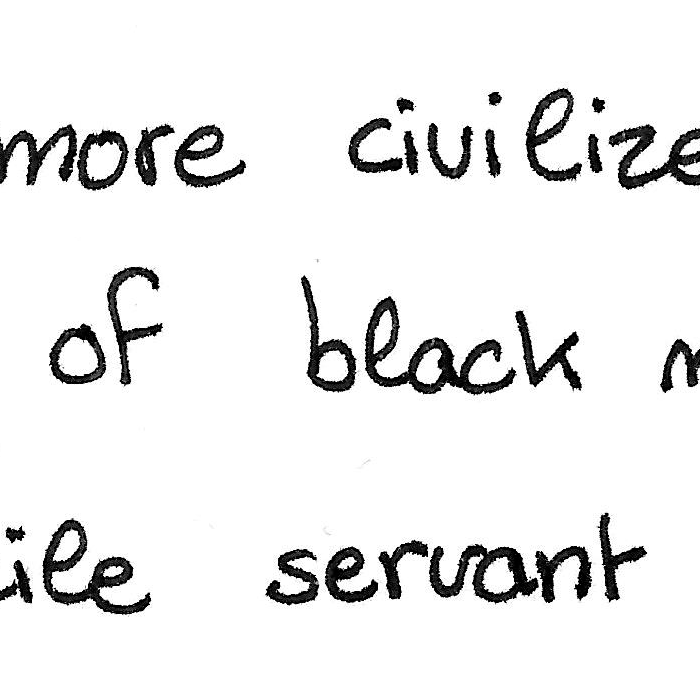 more civilize
of black
ile servant